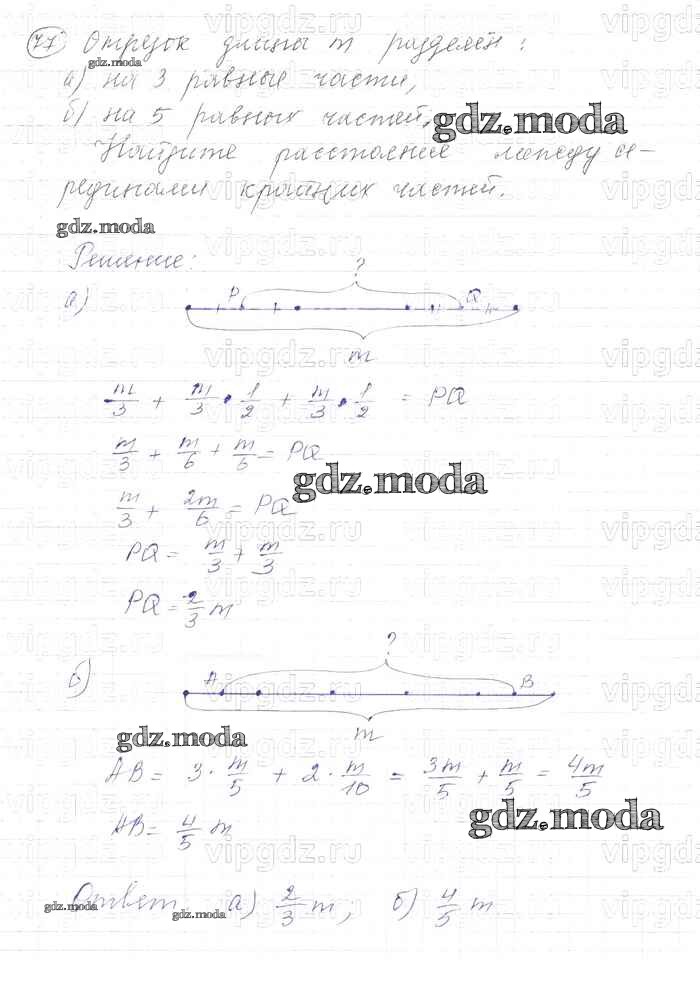 77 Отрезок длины m разделён:
gdz.moda
а) на 3 равные части,
б) на 5 равных частей.
gdz.moda
Найдите расстояние между се-
рединами крайних частей.
gdz.moda
Решение:
?
а) P Q
m
m/3 + m/3 · 1/2 + m/3 · 1/2 = PQ
m/3 + m/6 + m/6 = PQ
gdz.moda
m/3 + 2m/6 = PQ
PQ = m/3 + m/3
PQ = 2/3 m
?
б) A B
m
gdz.moda
AB = 3 · m/5 + 2 · m/10 = 3m/5 + m/5 = 4m/5
gdz.moda
AB = 4/5 m
Ответ а) 2/3 m, б) 4/5 m
gdz.moda gdz.moda
vipgdz.ru